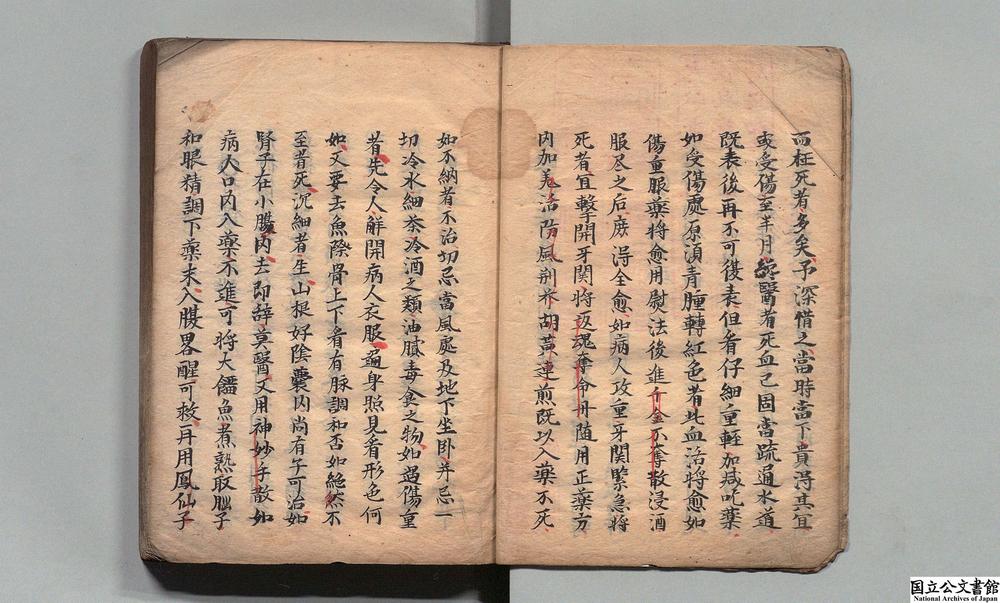 而枉死者多矣予深惜之當時當下貴得其宜
或受傷至半月無醫者死血已固當疏通水道
既表後再不可復表但看仔細重輕加減吃藥
如受傷處原湏青腫轉紅色者此血活將愈如
傷重服藥將愈用慰法後進千金不奪散浸酒
服尽之后庶得全愈如病人攻重牙関緊急將
死者宜擊開牙関將返魂奪命丹随用正藥方
内加羌活防風荆芥胡黃連煎既以入藥不死
如不納者不治切忌當風處及地下坐卧并忌一
切冷水細茶冷酒之類油膩毒食之物如遇傷重
者先令人觧開病人衣服遍身照見看形色何
如又要去魚際骨上下看有脉調和否如絶然不
至者死沉細者生山根好陰囊内尚有子可治如
腎子在小腸内去即辞莫醫又用神妙手散如
病人口内入藥不進可將大魚煮熟取子
和眼精調下藥末入腹畧醒可救再用鳳仙子
国立公文書館
National Archives of Japan